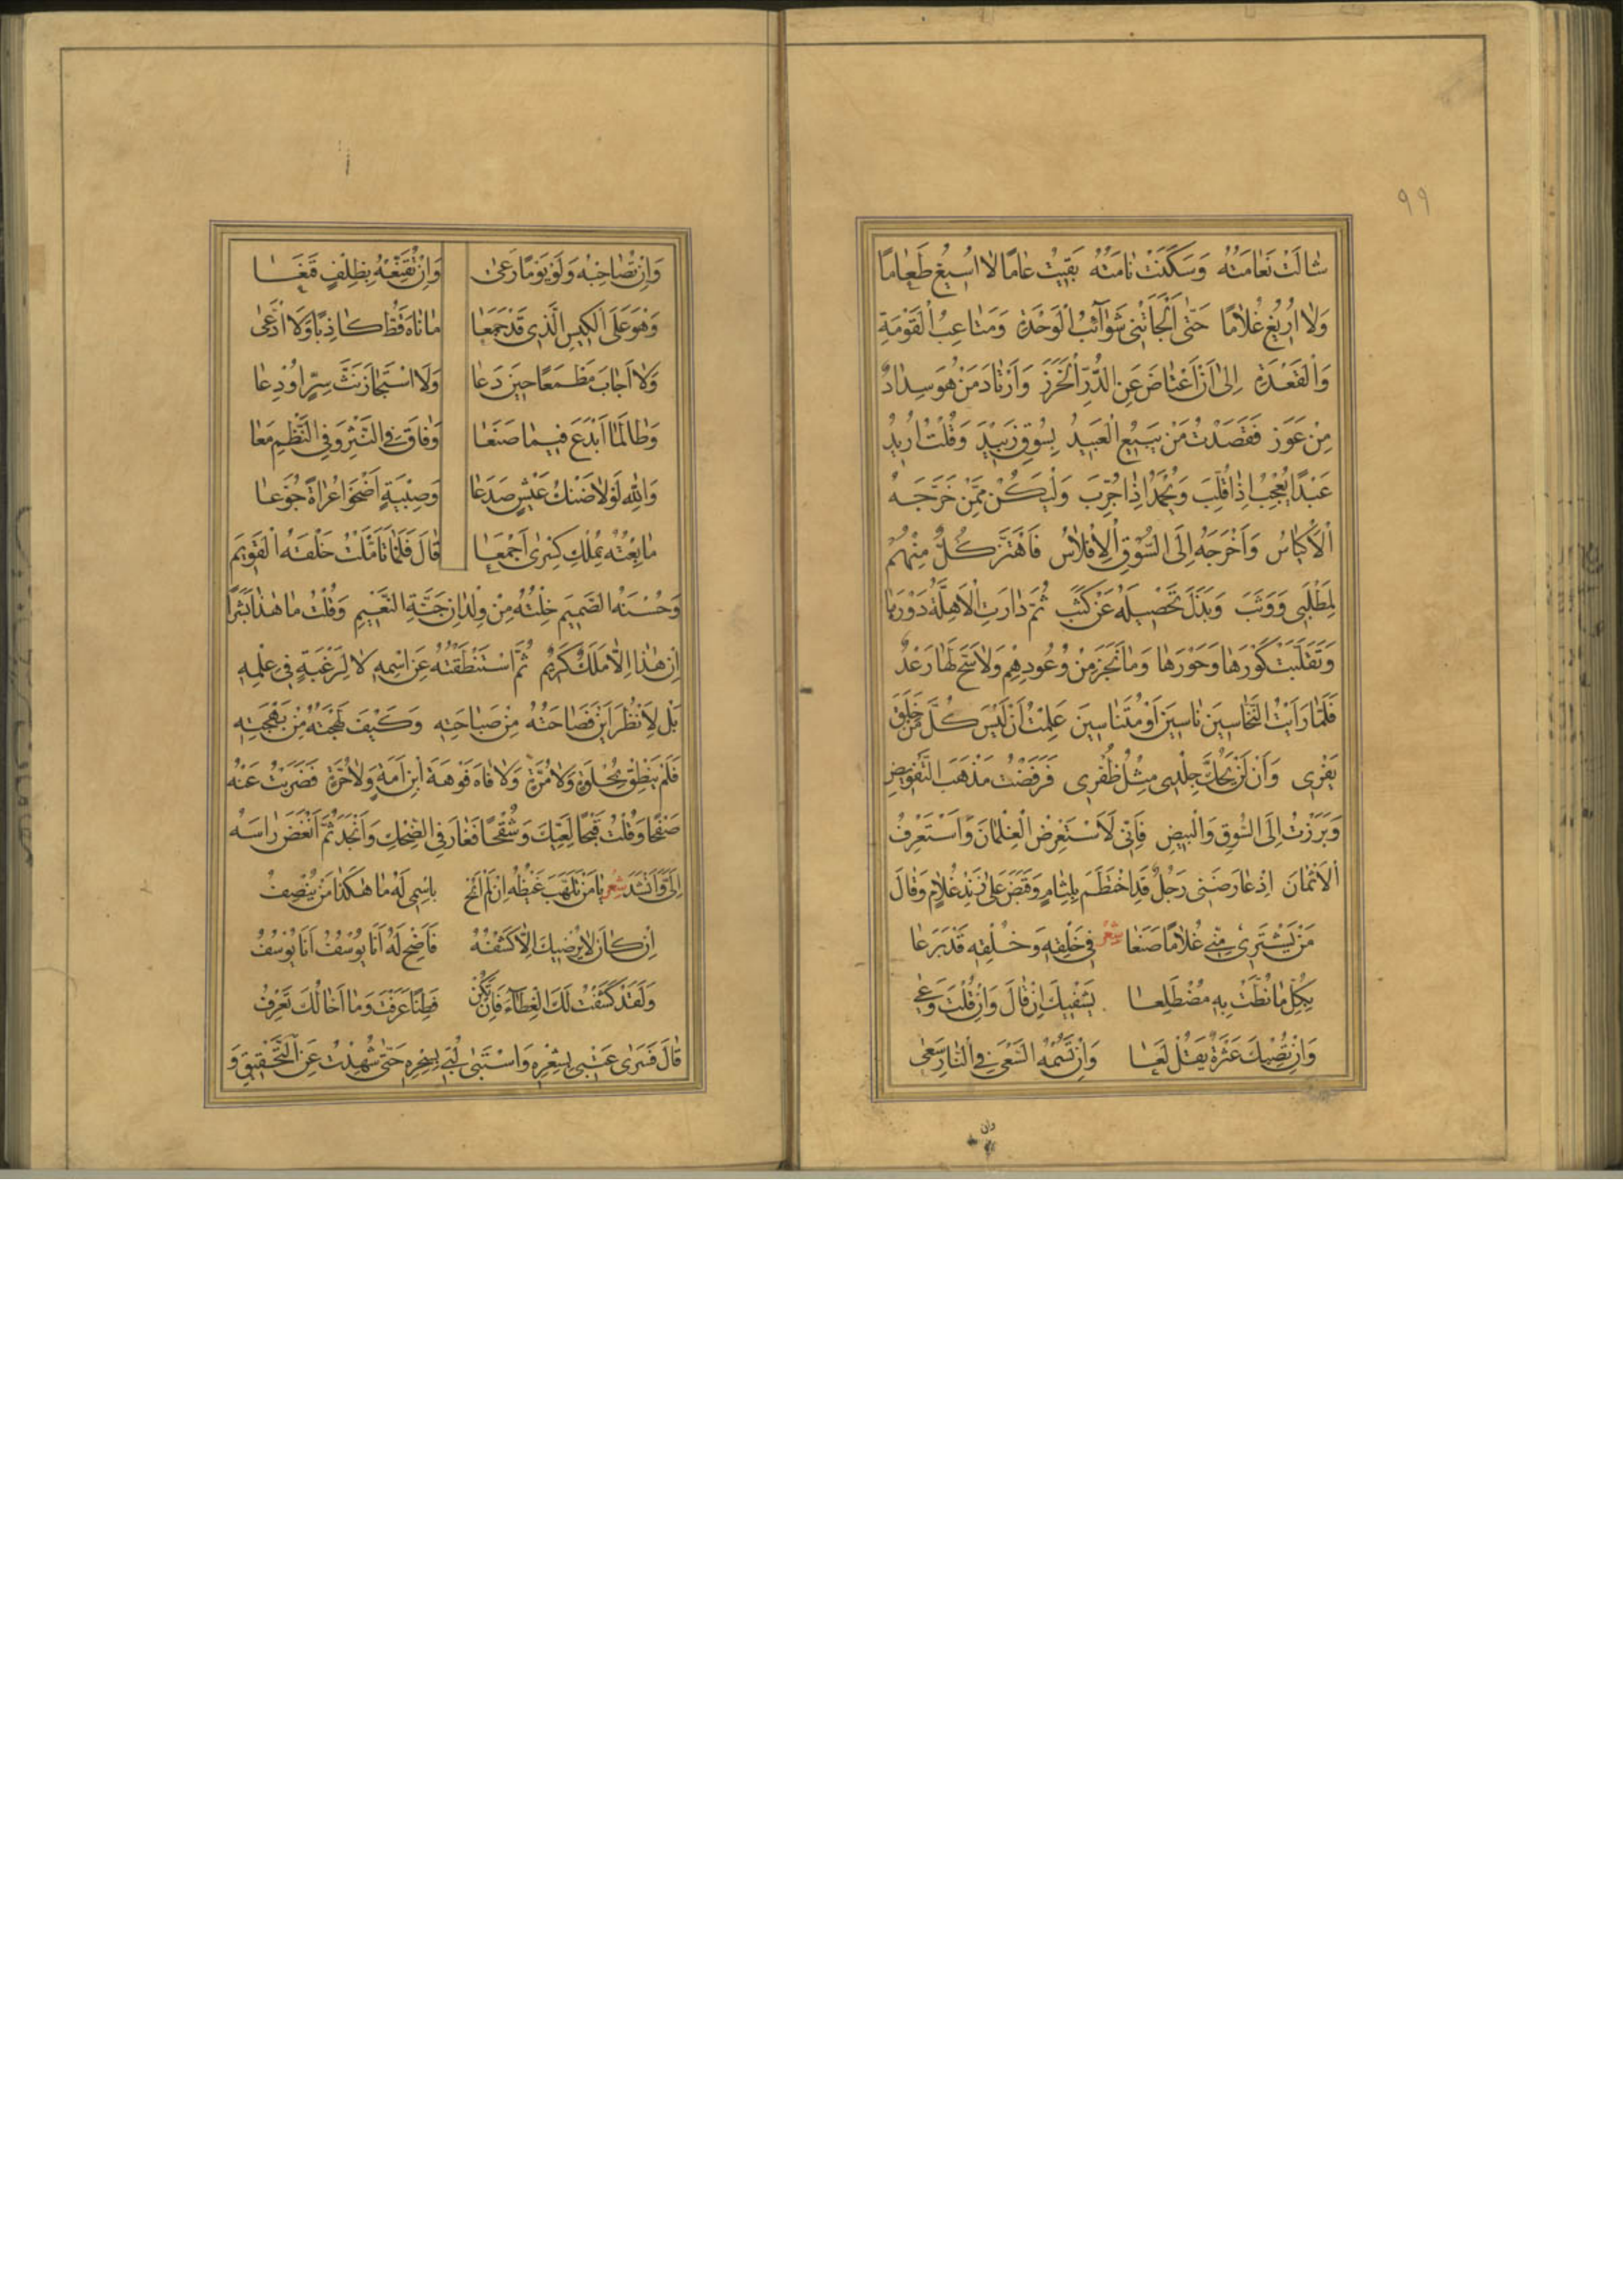 ٩٩
شَالَتْ نَعَامَتُهُ وَسَكَنَتْ نَامَتُهُ بَقِيتُ عَامًا لَا اُسِيغُ طَعَامًا
وَلَا اُرِيغُ غُلَامًا حَتّٰى اَلْجَاَتْنِى شَوَآئِبُ الْوَحْدَةِ وَمَتَاعِبُ الْقَوْمَةِ
وَالْقَعْدَةِ اِلٰى اَنْ اَعْتَاضَ عَنِ الدُّرِّ الْخَرَزَ وَاَرْتَادَ مَنْ هُوَ سِدَادٌ
مِنْ عَوَزٍ فَقَصَدْتُ مَنْ يَبِيعُ الْعَبِيدَ بِسُوقِ زَبِيدَ وَقُلْتُ اُرِيدُ
عَبْدًا يُعْجِبُ اِذَا قُلِّبَ وَيُحْمَدُ اِذَا جُرِّبَ وَلْيَكُنْ مِمَّنْ خَرَّجَهُ
الْاَكْيَاسُ وَاَخْرَجَهُ اِلَى السُّوقِ الْاِفْلَاسُ فَاهْتَزَّ كُلٌّ مِنْهُمْ
لِمَطْلَبِى وَوَثَبَ وَبَذَلَ تَحْصِيلَهُ عَنْ كَثَبٍ ثُمَّ دَارَتِ الْاَهِلَّةُ دَوْرَهَا
وَتَقَلَّبَتْ كَوْرَهَا وَحَوْرَهَا وَمَا نَجَزَ مِنْ وُعُودِهِمْ وَلَا سَحَّ لَهَا رَعْدٌ
فَلَمَّا رَاَيْتُ النَّخَّاسِينَ نَاسِينَ اَوْ مُتَنَاسِينَ عَلِمْتُ اَنْ لَيْسَ كُلُّ مَنْ خَلَقَ
يَفْرِى وَاَنْ لَنْ يَحُكَّ جِلْدِى مِثْلُ ظُفْرِى فَرَفَضْتُ مَذْهَبَ التَّفْوِيضِ
وَبَرَزْتُ اِلَى السُّوقِ وَالْبِيضِ فَاِنّى لَاَسْتَعْرِضُ الْغِلْمَانَ وَاَسْتَعْرِفُ
الْاَثْمَانَ اِذْ عَارَضَنِى رَجُلٌ قَدِ اخْتَطَمَ بِلِثَامٍ وَقَبَضَ عَلٰى زَنْدِ غُلَامٍ وَقَالَ
مَنْ يَشْتَرِى مِنِّى غُلَامًا صَنَعَا شعر فِى خَلْقِهِ وَخُلْقِهِ قَدْ بَرَعَا
بِكُلِّ مَا نُطْتَ بِهِ مُضْطَلِعَا يَشْفِيكَ اِنْ قَالَ وَاِنْ قُلْتَ وَعٰى
وَاِنْ تُصِبْكَ عَثْرَةٌ يَقُلْ لَعَا وَاِنْ تَسُمْهُ السَّعْىَ فِى النَّارِ سَعٰى
وان
وَاِنْ تُصَاحِبْهُ وَلَوْ يَوْمًا رَعٰى وَاِنْ تُقَنِّعْهُ بِظِلْفٍ قَنَعَا
وَهْوَ عَلَى الْكَيْسِ الَّذِى قَدْ جَمَعَا مَا فَاهَ قَطُّ كَاذِبًا وَلَا ادَّعٰى
وَلَا اَجَابَ مَطْمَعًا حِينَ دَعَا وَلَا اسْتَجَازَ نَثَّ سِرٍّ اُودِعَا
وَطَالَمَا اَبْدَعَ فِيمَا صَنَعَا وَفَاقَ فِى النَّثْرِ وَفِى النَّظْمِ مَعَا
وَاللّٰهِ لَوْلَا ضَنْكُ عَيْشٍ صَدَعَا وَصِبْيَةٍ اَضْحَوْا عُرَاةً جُوَّعَا
مَا بِعْتُهُ بِمُلْكِ كِسْرٰى اَجْمَعَا قَالَ فَلَمَّا تَاَمَّلْتُ خَلْقَهُ الْقَوِيمَ
وَحُسْنَهُ الصَّمِيمَ خِلْتُهُ مِنْ وِلْدَانِ جَنَّةِ النَّعِيمِ وَقُلْتُ مَا هٰذَا بَشَرًا
اِنْ هٰذَا اِلَّا مَلَكٌ كَرِيمٌ ثُمَّ اسْتَنْطَقْتُهُ عَنِ اسْمِهِ لَا لِرَغْبَةٍ فِى عِلْمِهِ
بَلْ لِاَنْظُرَ اَيْنَ فَصَاحَتُهُ مِنْ صَبَاحَتِهِ وَكَيْفَ لَهْجَتُهُ مِنْ بَهْجَتِهِ
فَلَمْ يَنْطِقْ بِحُلْوَةٍ وَلَا مُرَّةٍ وَلَا فَاهَ فَوْهَةَ ابْنِ اَمَةٍ وَلَا حُرَّةٍ فَضَرَبْتُ عَنْهُ
صَفْحًا وَقُلْتُ قُبْحًا لِعِيِّكَ وَشُقْحًا فَغَارَ فِى الضِّحْكِ وَاَنْجَدَ ثُمَّ اَنْغَضَ رَاْسَهُ
اِلَىَّ وَاَنْشَدَ شعر يَا مَنْ تَلَهَّبَ غَيْظُهُ اِنْ لَمْ اَبُحْ بِاسْمِى لَهُ مَا هٰكَذَا مَنْ يُنْصِفُ
اِنْ كَانَ لَا يُرْضِيكَ اِلَّا كَشْفُهُ فَاَصِخْ لَهُ اَنَا يُوسُفُ اَنَا يُوسُفُ
وَلَقَدْ كَشَفْتُ لَكَ الْغِطَآءَ فَاِنْ تَكُنْ فَطِنًا عَرَفْتَ وَمَا اَخَالُكَ تَعْرِفُ
قَالَ فَسَرٰى عَتْبِى بِشِعْرِهِ وَاسْتَبٰى لُبِّى بِسِحْرِهِ حَتّٰى شُدِهْتُ عَنِ التَّحْقِيقِ وَ